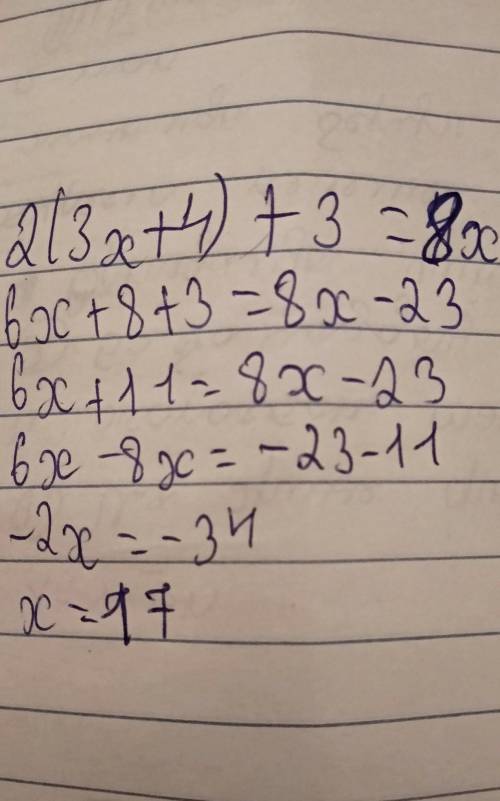 2(3x+4) + 3 = 8x
6x + 8 + 3 = 8x - 23
6x + 11 = 8x - 23
6x - 8x = -23 - 11
-2x = -34
x = 17